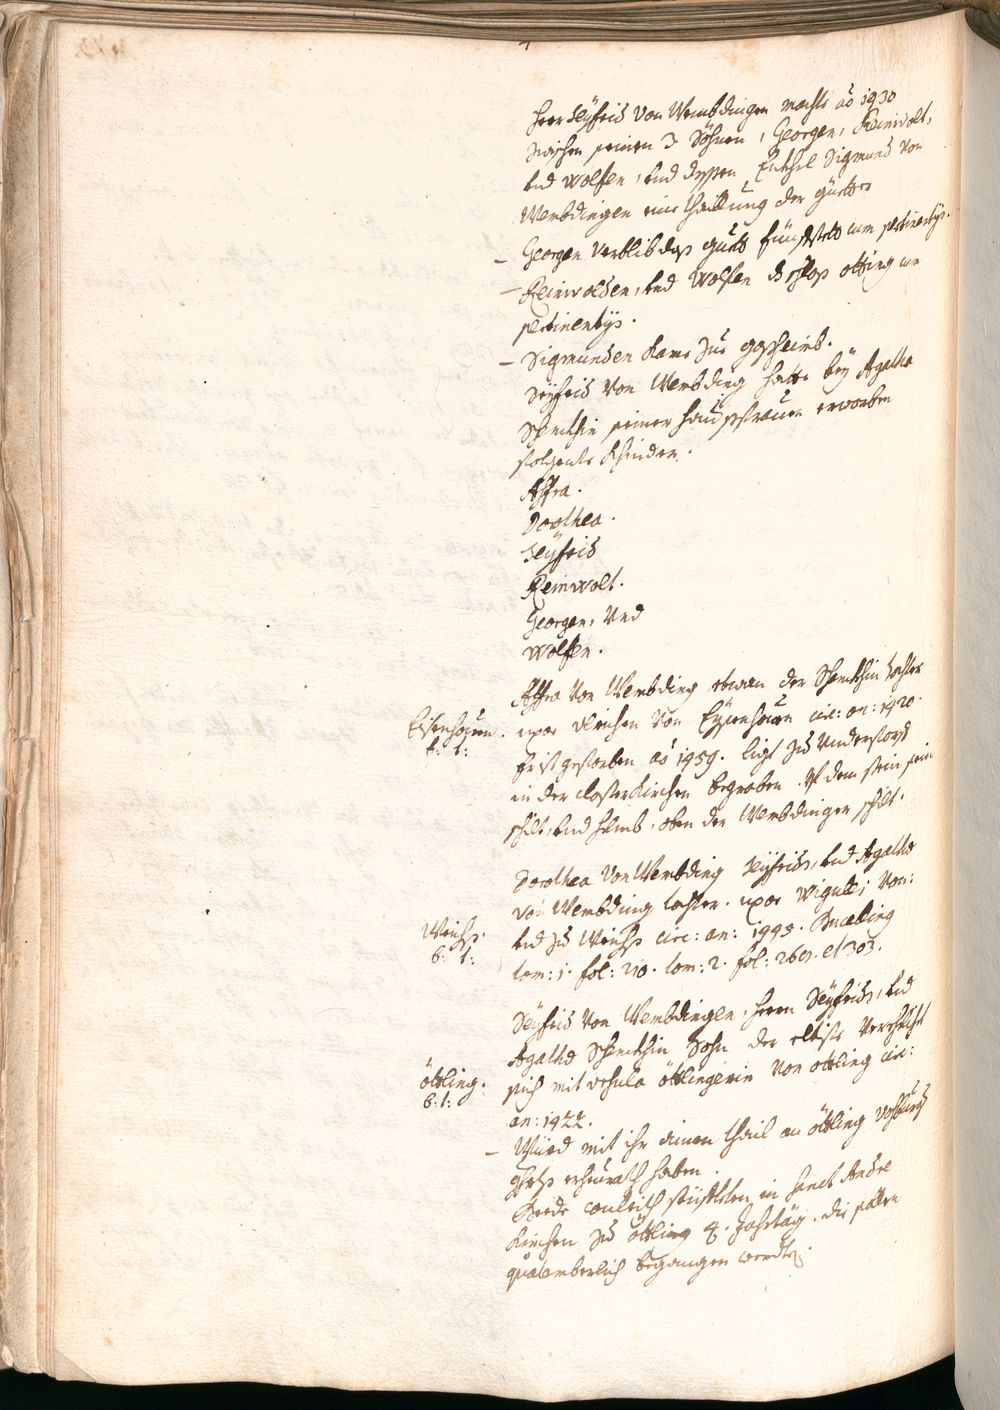 Herr Seÿfrid von Wembdingen machte aō 1430
zwischen seinen 3 Söhnen, Georgen, Reinwolt,
und Wolfen, und dessen Enkhel Sigmund von
Wembdingen eine thaillung der güetter
– Georgen verblib das guett Fünfstett cum pertinentijs.
– Reinwolden, und Wolfen ds schlos otting cum
pertinentijs.
– Sigmunden kame zue gosheimb.
Seÿfrid von Wembding hatte beÿ Agatha
Spethin seiner hausfrauen erworben
folgente khinder.
Affra.
Dorothea.
Seÿfrid
Reinwolt.
Georgen, und
Wolfen.
Affra von Wembding der tochter
Eisenhouen. uxor von Eÿsenhouen circ: an: 1420.
b: t: Er ist gestorben aō 1459. ligt zu Understorf
in der closterkirchen begraben. Uf dem stein sein
schilt, und helmb, oben der Wembdinger schilt.
Dorothea von Wembding Seÿfrids, und Agatha
von Wembding tochter. uxor Wigulei von:
Weichs. und zu Weichs circ: an: 1445. Bucelling
b: t: tom: 1. fol: 210. tom: 2. fol: et 303.
Seÿfrid von Wembdingen, herrn Seÿfrids, und
Agatha Sohn der eltiste verehlicht
öttling. sich mit vrsula öttlingerin von ottling circ:
b: t: an: 1422.
– Würd mit ihr ainen thail an öttling
erheurath haben.
Beede in Sanct Andre
kirchen zu öttling 4. Jahrtäg. die sollen
quatemberlich begangen werdten.